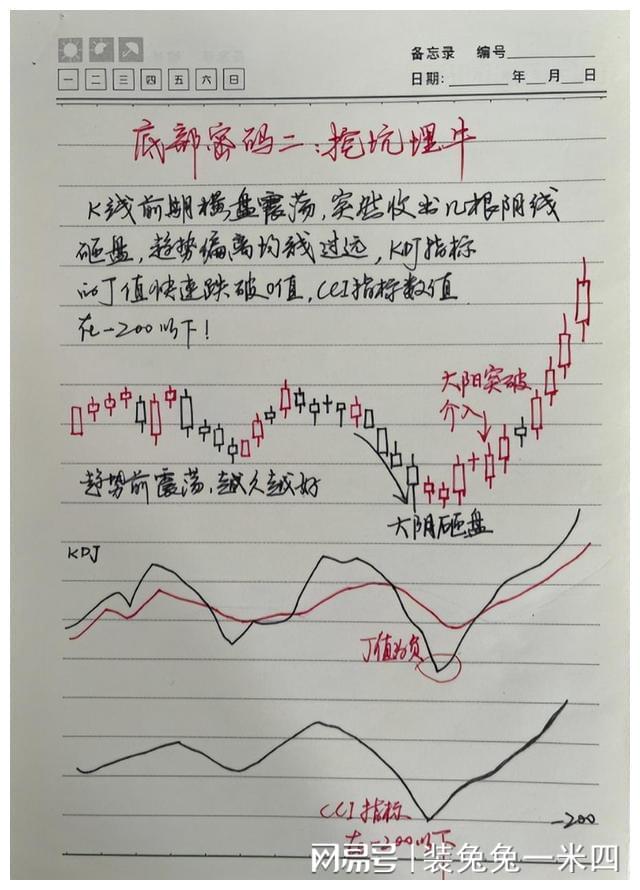 备忘录 编号
一 二 三 四 五 六 日
日期: 年 月 日
底部密码二:挖坑埋牛
K线前期横盘震荡,突然收出几根阴线
砸盘,趋势偏离均线过远,KDJ指标
的J值快速跌破0值,CCI指标数值
在-200以下!
大阳突破
介入
趋势前震荡,越久越好
大阴砸盘
KDJ
J值为负
CCI指标
-200
在-200以下
网易号 | 装兔兔一米四